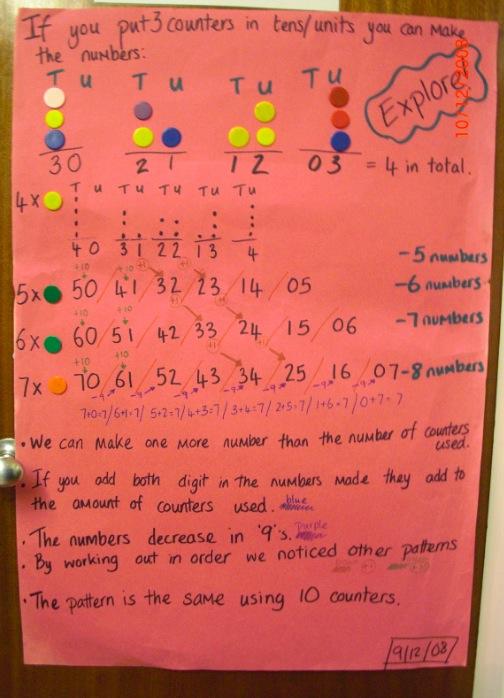 If you put 3 counters in tens/units you can make
the numbers:
T U T U T U T U
Explore
10/12/2008
30 21 12 03 = 4 in total.
4x T U T U T U T U T U
40 31 22 13 4 -5 numbers
+10 +10 +1 +1
5x 50 / 41 / 32 / 23 / 14 / 05 -6 numbers
+10 +10 +1 +1
6x 60 / 51 / 42 / 33 / 24 / 15 / 06 -7 numbers
+10 +10 +1
7x 70 / 61 / 52 / 43 / 34 / 25 / 16 / 07 -8 numbers
-9 -9 -9 -9 -9 -9 -9
7+0=7/6+1=7/ 5+2=7/4+3=7/ 3+4=7/ 2+5=7/ 1+6=7/ 0+7=7
• We can make one more number than the number of counters
used.
• If you add both digit in the numbers made they add to
the amount of counters used. blue
• The numbers decrease in '9's. purple
• By working out in order we noticed other patterns
• The pattern is the same using 10 counters.
9/12/08